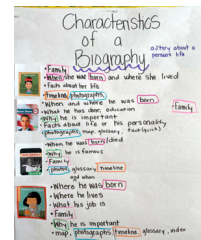 Characteristics
of a
Biography
a story about a
person's life
• Family
• When she was born and where she lived
• Facts about her life
• Timeline, photographs,
• When and where he was born
• What he has done, education
Family
• Why he is important
• Facts about life or his personality
• photographs, map, glossary, facts (quick)
• When he was born/died
• Why he is famous
• Family
• photos, glossary, timeline
and when
• Where he was born
• Where he lives
• What his job is
• Family
• Why he is important
• map, photographs, timeline, glossary, index